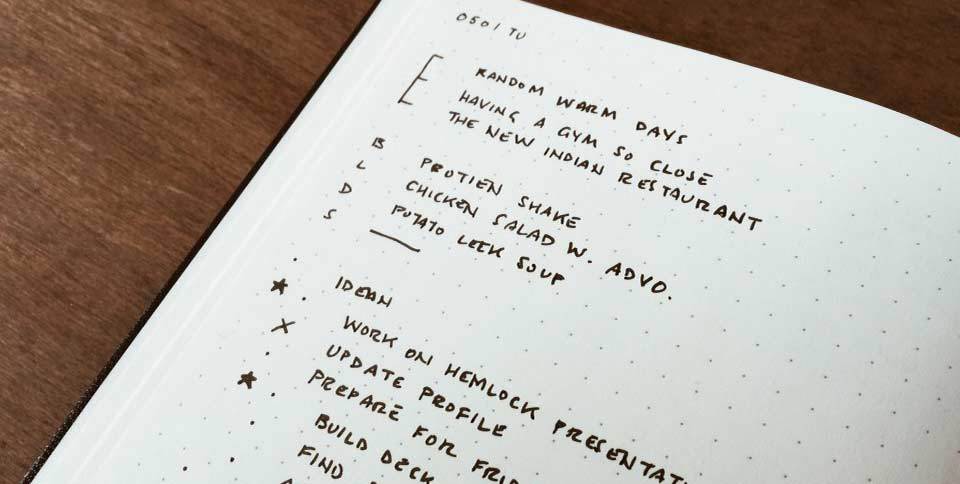 0501 TU
RANDOM WARM DAYS
HAVING A GYM SO CLOSE
THE NEW INDIAN RESTAURANT
B PROTIEN SHAKE
L CHICKEN SALAD W. ADVO.
D POTATO LEEK SOUP
S
IDEAN
WORK ON HEMLOCK PRESENTAT
X UPDATE PROFILE
PREPARE FOR FRID
BUILD DECK
FIND